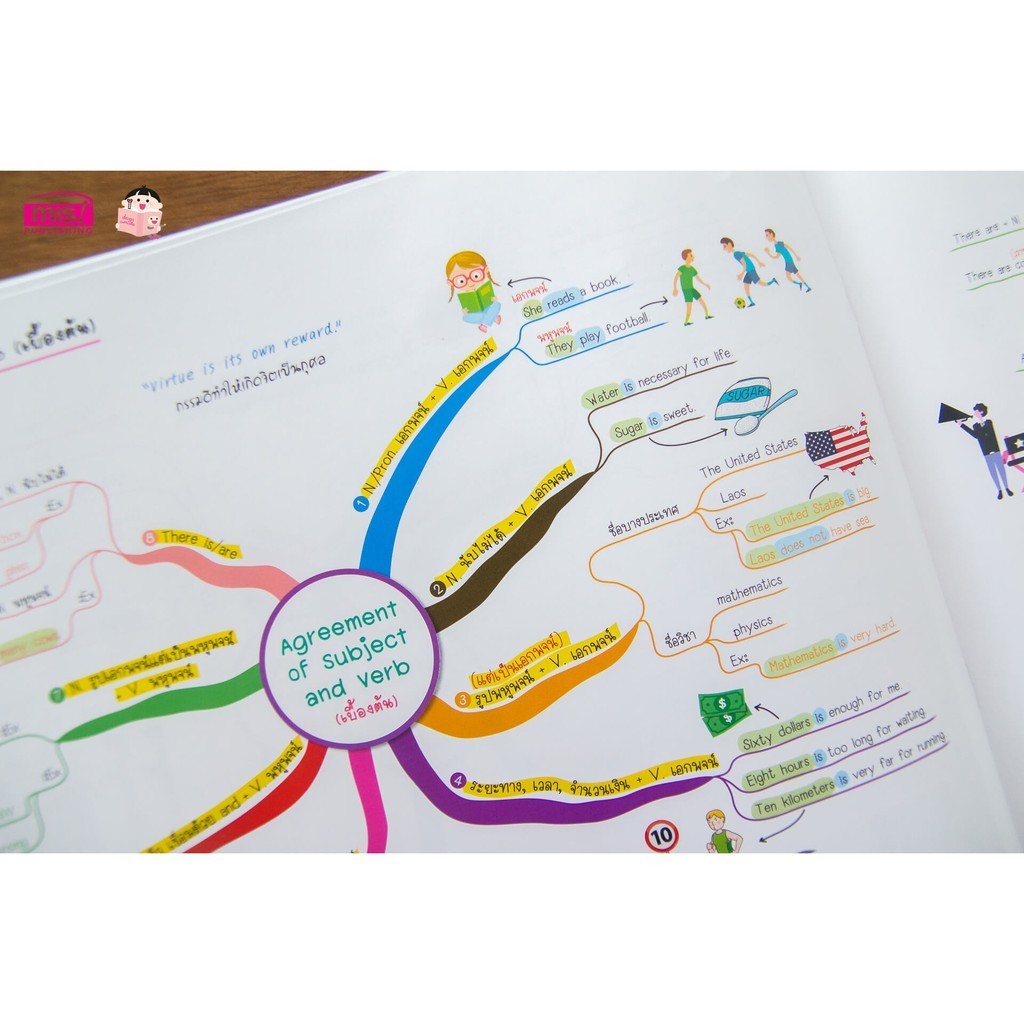 mis
(เบื้องต้น)
"Virtue is its own reward."
กรรมดีทำให้เกิดจิตเป็นกุศล
Agreement
of subject
and verb
(เบื้องต้น)
1 N./Pron. เอกพจน์ + V. เอกพจน์
เอกพจน์
She reads a book.
พหูพจน์
They play football.
2 N. นับไม่ได้ + V. เอกพจน์
Water is necessary for life.
Sugar is sweet.
SUGAR
3 รูปพหูพจน์ + V. เอกพจน์
(แต่เป็นเอกพจน์)
ชื่อบางประเทศ
The United States
Laos
Ex:
The United States is big.
Laos does not have sea.
ชื่อวิชา
mathematics
physics
Ex:
Mathematics is very hard.
4 ระยะทาง, เวลา, จำนวนเงิน + V. เอกพจน์
Sixty dollars is enough for me.
Eight hours is too long for waiting.
Ten kilometers is very far for running.
10
and + V. พหูพจน์
7 N. รูปเอกพจน์แต่เป็นพหูพจน์
+ V. พหูพจน์
8 There is/are
Ex
Ex
There are + N.
There are